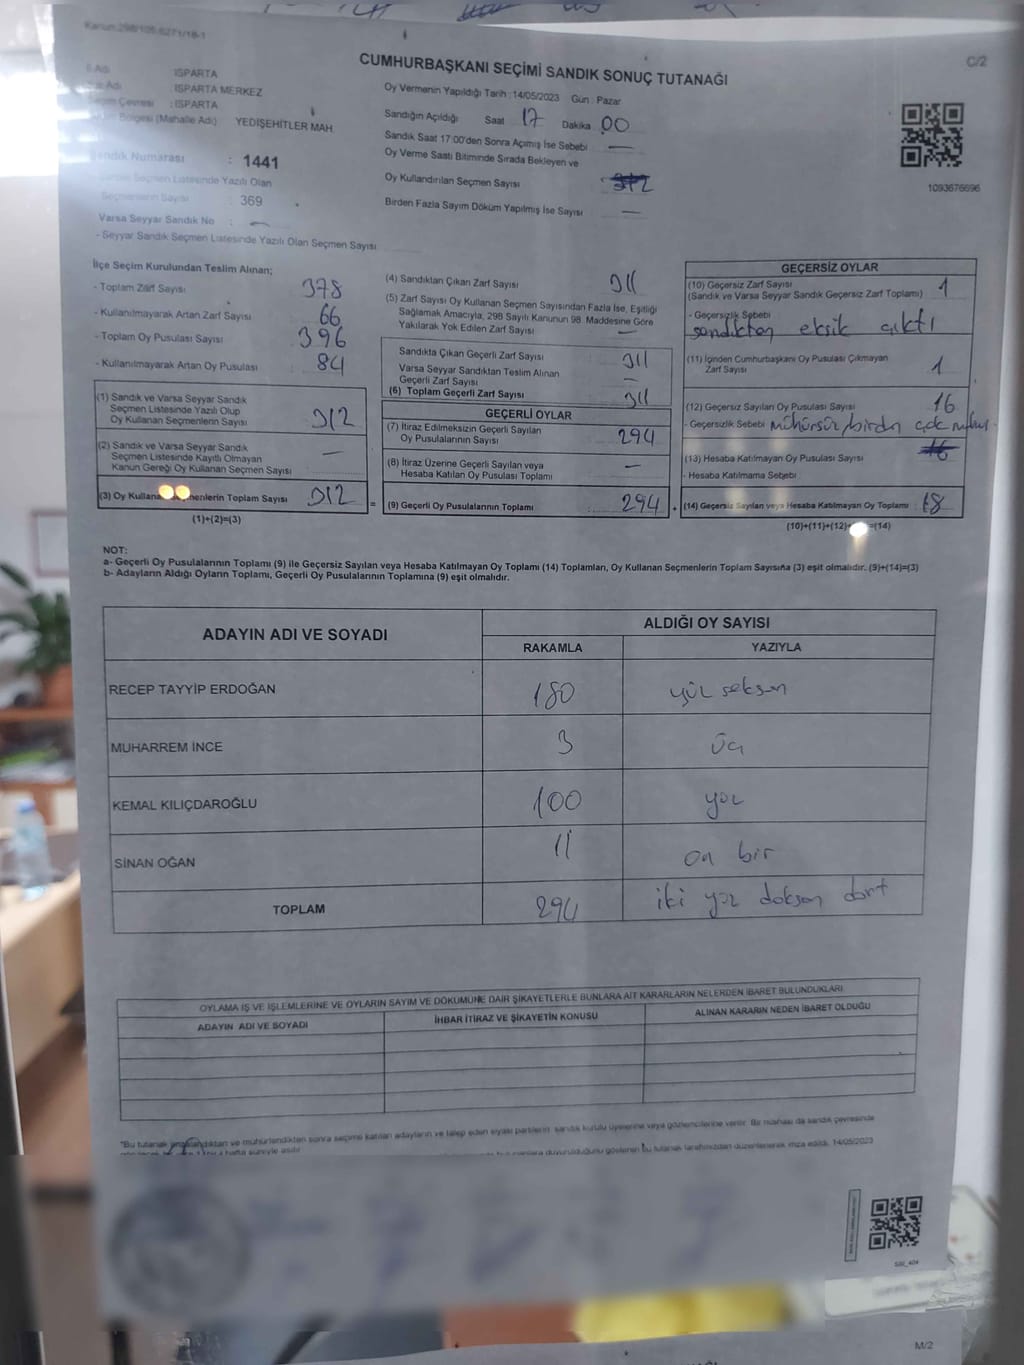 Kanun:298/105-6271/18-1
C/2
CUMHURBAŞKANI SEÇİMİ SANDIK SONUÇ TUTANAĞI
İl Adı : ISPARTA
İlçe Adı : ISPARTA MERKEZ
Seçim Çevresi : ISPARTA
Bölgesi (Mahalle Adı) YEDİŞEHİTLER MAH.
Sandık Numarası : 1441
Sandık Seçmen Listesinde Yazılı Olan
Seçmenlerin Sayısı : 369
Varsa Seyyar Sandık No : —
- Seyyar Sandık Seçmen Listesinde Yazılı Olan Seçmen Sayısı
Oy Vermenin Yapıldığı Tarih : 14/05/2023 Gün : Pazar
Sandığın Açıldığı Saat 17 Dakika 00
Sandık Saat 17:00'den Sonra Açımış İse Sebebi —
Oy Verme Saati Bitiminde Sırada Bekleyen ve
Oy Kullandırılan Seçmen Sayısı
Birden Fazla Sayım Döküm Yapılmış İse Sayısı —
1093676696
İlçe Seçim Kurulundan Teslim Alınan;
- Toplam Zarf Sayısı 378
- Kullanılmayarak Artan Zarf Sayısı 66
- Toplam Oy Pusulası Sayısı 396
- Kullanılmayarak Artan Oy Pusulası 84
(1) Sandık ve Varsa Seyyar Sandık
Seçmen Listesinde Yazılı Olup
Oy Kullanan Seçmenlerin Sayısı 312
(2) Sandık ve Varsa Seyyar Sandık
Seçmen Listesinde Kayıtlı Olmayan
Kanun Gereği Oy Kullanan Seçmen Sayısı —
(3) Oy Kullanan Seçmenlerin Toplam Sayısı 312
(1)+(2)=(3)
(4) Sandıktan Çıkan Zarf Sayısı 311
(5) Zarf Sayısı Oy Kullanan Seçmen Sayısından Fazla İse, Eşitliği
Sağlamak Amacıyla, 298 Sayılı Kanunun 98. Maddesine Göre
Yakılarak Yok Edilen Zarf Sayısı —
Sandıkta Çıkan Geçerli Zarf Sayısı 311
Varsa Seyyar Sandıktan Teslim Alınan
Geçerli Zarf Sayısı —
(6) Toplam Geçerli Zarf Sayısı 311
GEÇERLİ OYLAR
(7) İtiraz Edilmeksizin Geçerli Sayılan
Oy Pusulalarının Sayısı 294
(8) İtiraz Üzerine Geçerli Sayılan veya
Hesaba Katılan Oy Pusulası Toplamı —
= (9) Geçerli Oy Pusulalarının Toplamı 294 +
GEÇERSİZ OYLAR
(10) Geçersiz Zarf Sayısı 1
(Sandık ve Varsa Seyyar Sandık Geçersiz Zarf Toplamı)
- Geçersizlik Sebebi
sandıktan eksik çıktı
(11) İçinden Cumhurbaşkanı Oy Pusulası Çıkmayan
Zarf Sayısı 1
(12) Geçersiz Sayılan Oy Pusulası Sayısı 16
- Geçersizlik Sebebi mühürsüz/birden çok mühür
(13) Hesaba Katılmayan Oy Pusulası Sayısı
- Hesaba Katılmama Sebebi
(14) Geçersiz Sayılan veya Hesaba Katılmayan Oy Toplamı 18
(10)+(11)+(12)+ =(14)
NOT:
a- Geçerli Oy Pusulalarının Toplamı (9) ile Geçersiz Sayılan veya Hesaba Katılmayan Oy Toplamı (14) Toplamları, Oy Kullanan Seçmenlerin Toplam Sayısına (3) eşit olmalıdır. (9)+(14)=(3)
b- Adayların Aldığı Oyların Toplamı, Geçerli Oy Pusulalarının Toplamına (9) eşit olmalıdır.
ADAYIN ADI VE SOYADI
ALDIĞI OY SAYISI
RAKAMLA YAZIYLA
RECEP TAYYİP ERDOĞAN 180 yüz seksen
MUHARREM İNCE 3 üç
KEMAL KILIÇDAROĞLU 100 yüz
SİNAN OĞAN 11 on bir
TOPLAM 294 iki yüz doksan dört
OYLAMA İŞ VE İŞLEMLERİNE VE OYLARIN SAYIM VE DÖKÜMÜNE DAİR ŞİKAYETLERLE BUNLARA AİT KARARLARIN NELERDEN İBARET BULUNDUKLARI
ADAYIN ADI VE SOYADI İHBAR İTİRAZ VE ŞİKAYETİN KONUSU ALINAN KARARIN NEDEN İBARET OLDUĞU
"Bu tutanak imzalandıktan ve mühürlendikten sonra seçime katılan adayların ve talep eden siyasi partilerin sandık kurulu üyelerine veya gözlemcilerine verilir. Bir nüshası da sandık çevresinde
bu tutanak tarafımızdan düzenlenerek imza edildi. 14/05/2023
M/2